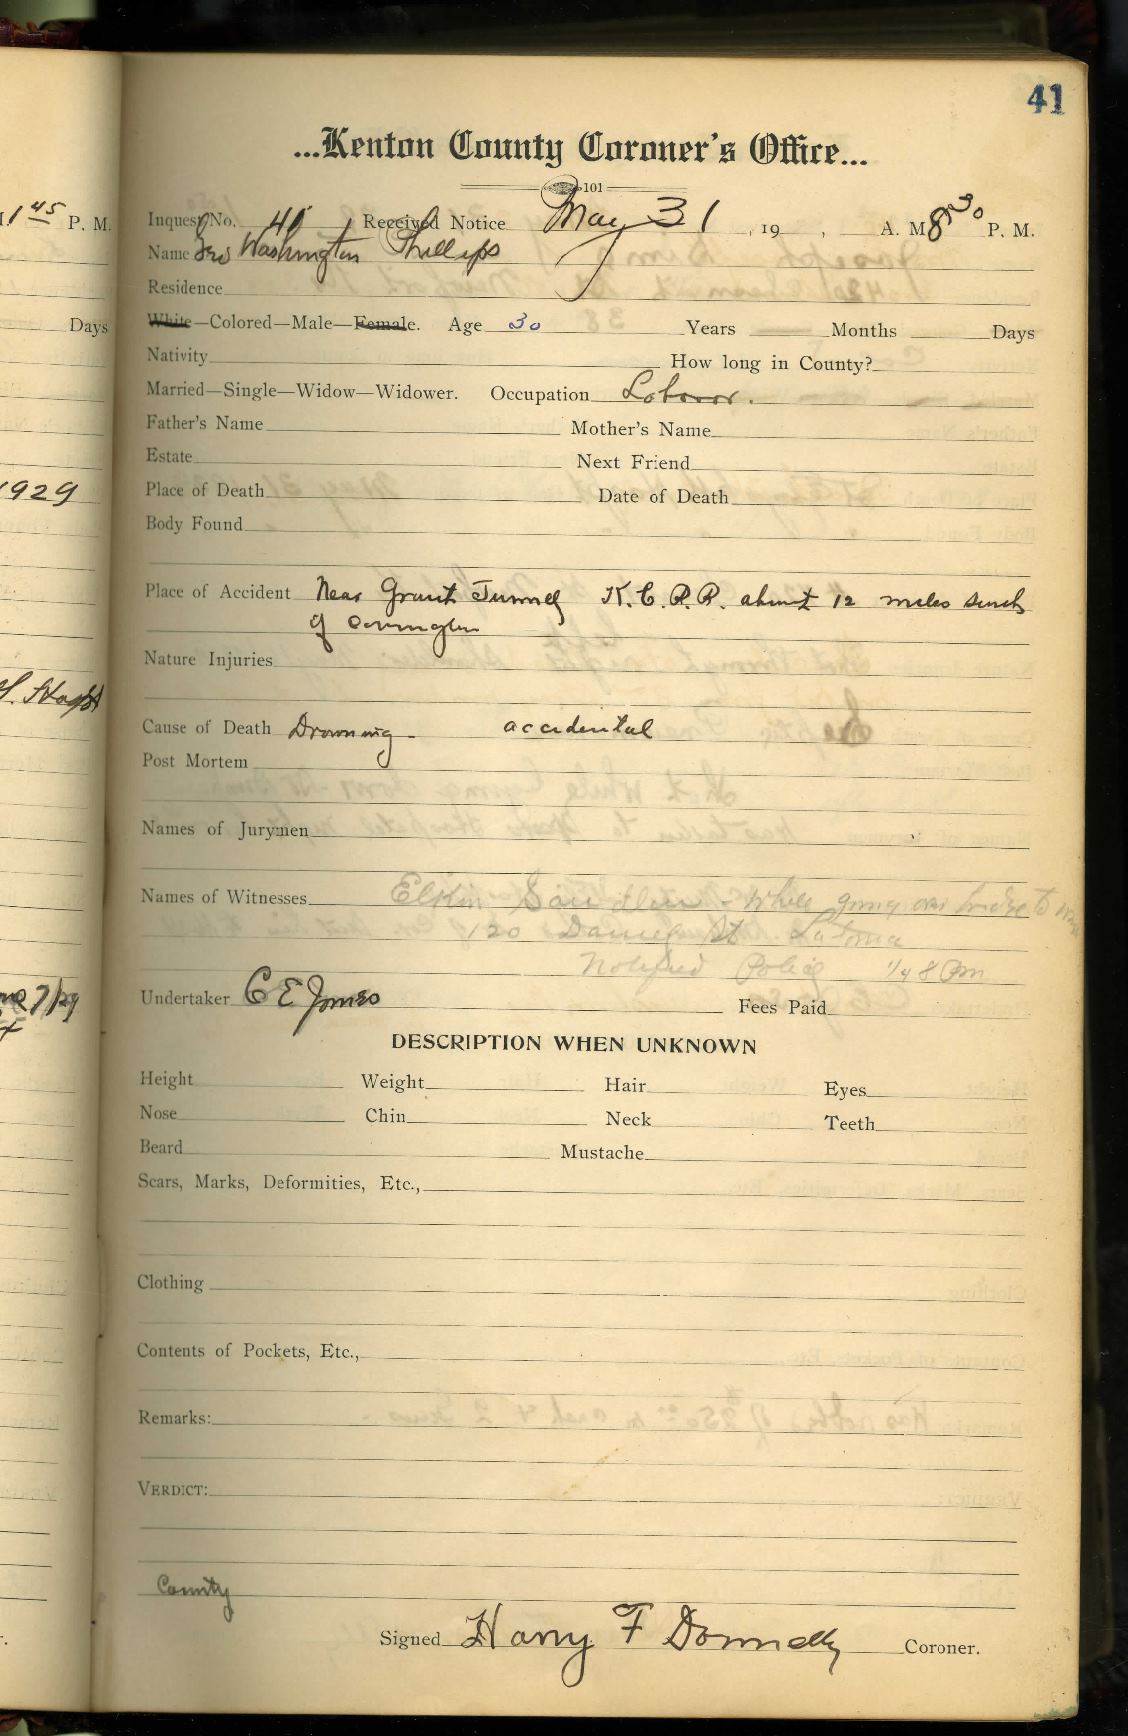 41
...Kenton County Coroner's Office...
101
1 45 P. M.
Inquest No. 41 Received Notice May 31, 19 , A. M 8 30 P. M.
Name Geo Washington Phillips
Residence
Days
White—Colored—Male—Female. Age 30 Years Months Days
Nativity How long in County?
Married—Single—Widow—Widower. Occupation Laborer.
Father's Name Mother's Name
Estate Next Friend
1929
Place of Death Date of Death
Body Found
Place of Accident Near Grant Tunnel K. C. R. R. about 12 miles south
of Covington
Nature Injuries
Cause of Death Drowning - accidental
Post Mortem
Names of Jurymen
Names of Witnesses Elkin - While going over bridge to
120 Daniel St. Latonia
Notified Police 8 Pm
Undertaker C E Jones Fees Paid
7/29
DESCRIPTION WHEN UNKNOWN
Height Weight Hair Eyes
Nose Chin Neck Teeth
Beard Mustache
Scars, Marks, Deformities, Etc.,
Clothing
Contents of Pockets, Etc.,
Remarks:
VERDICT:
County
Signed Harry F Donnelly Coroner.